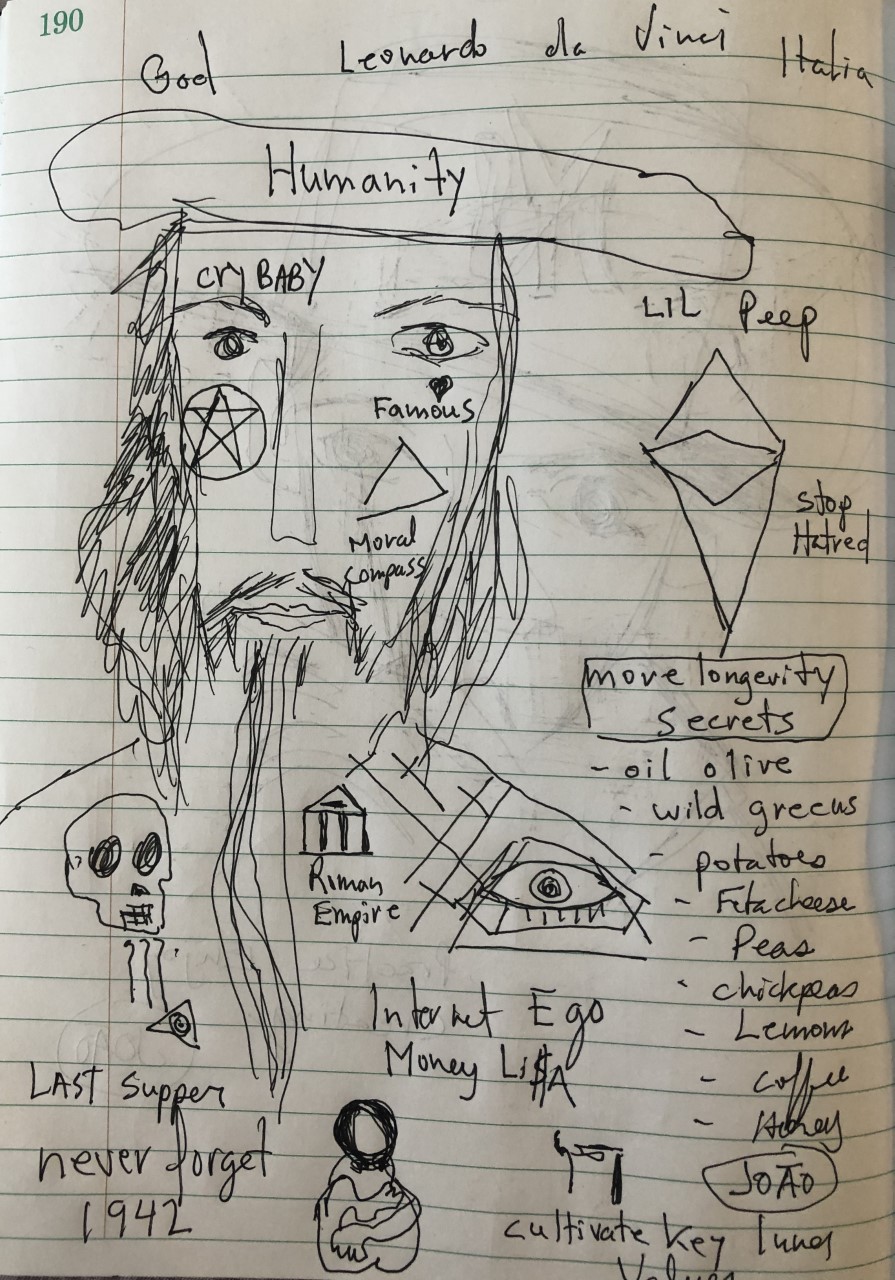 190
God Leonardo da Vinci Italia
Humanity
cry BABY
LIL Peep
Famous
Stop
Hatred
Moral
compass
move longevity
secrets
- oil olive
- wild greens
- potatoes
- Feta cheese
- Peas
- chickpeas
- Lemons
- coffee
- Honey
Roman
Empire
Internet Ego
Money Li$A
LAST Supper
never forget
1942
JOÃO
cultivate key
Values